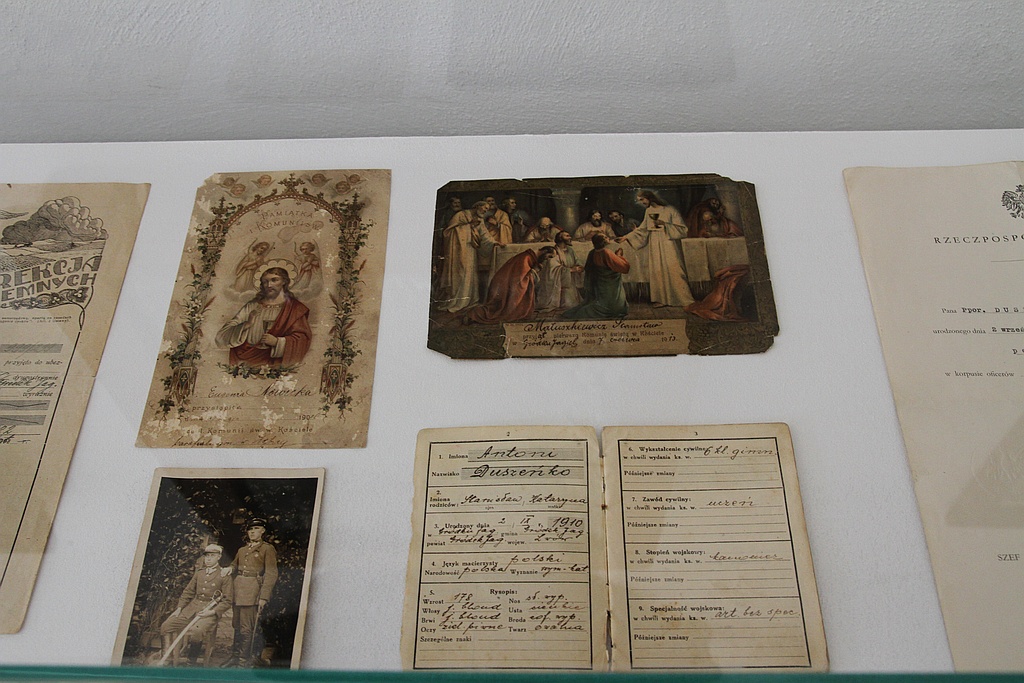 REKCJA
IEMNYCH
PAMIĄTKA
KOMUNII ŚW.
przystąpiła
190
do 1. Komunii św. w Kościele
Matuszkiewicz Stanisław
przyjął pierwszą Komunię świętą w Kościele
w Gródku Jagiel. dnia 7. czerwca 1913
2
1. Imiona Antoni
Nazwisko Duszeńko
2.
Imiona rodziców: Stanisław, Katarzyna
ojca matki
3. Urodzony dnia 2 IX r. 1910
w Gródku Jag gmina Gródek Jag
powiat Gródek Jag wojew. Lwów
4. Język macierzysty polski
Narodowość polska Wyznanie rzym-kat
5. Rysopis:
Wzrost 178 Nos
Włosy j. blond Usta
Brwi j. blond Broda
Oczy ziel. piwne Twarz owalna
Szczególne znaki
3
6. Wykształcenie cywilne
w chwili wydania ks. w. 6 kl. gimn
Późniejsze zmiany
7. Zawód cywilny:
w chwili wydania ks. w. uczeń
Późniejsze zmiany
8. Stopień wojskowy:
w chwili wydania ks. w. kanonier
Późniejsze zmiany
9. Specjalność wojskowa:
w chwili wydania ks. w. art. bez spec
Późniejsze zmiany
RZECZPOSPO
Pana Ppor. DUS
urodzonego dnia 2 wrześ
w korpusie oficerów
SZEF